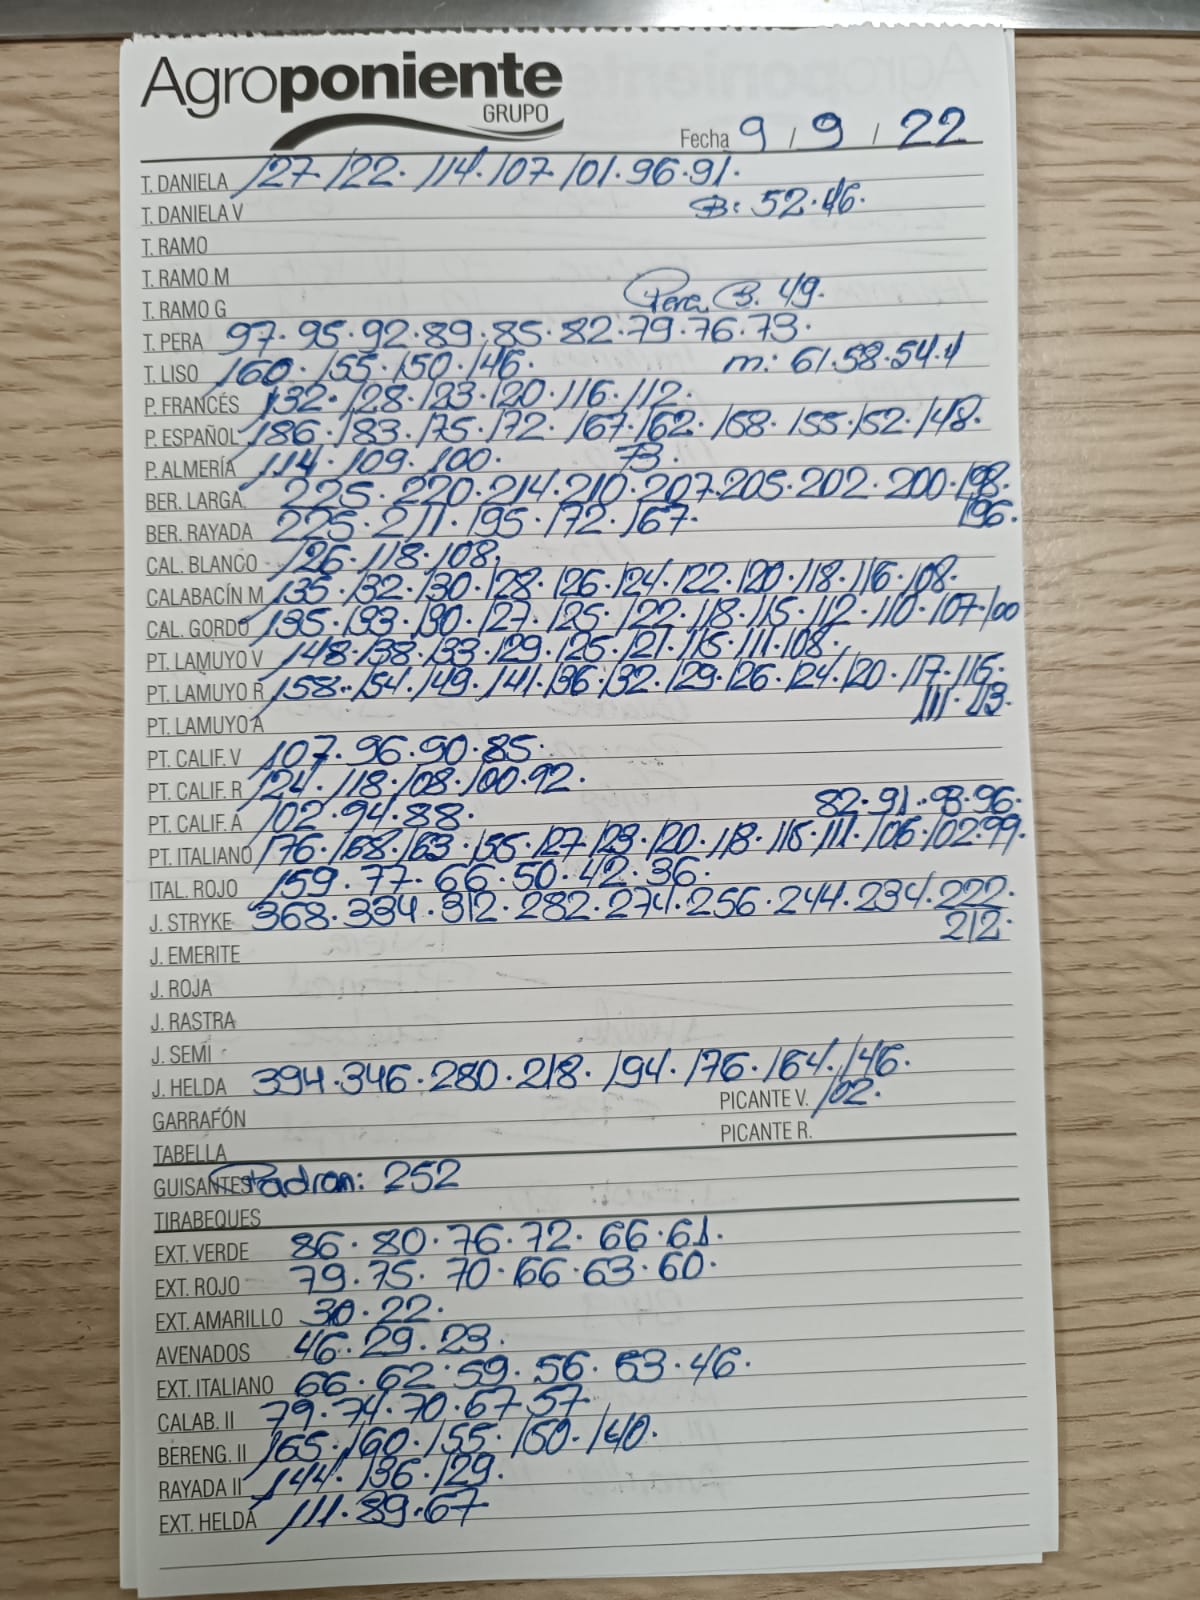 Agroponiente
GRUPO
Fecha 9 / 9 / 22
T. DANIELA 127. 122. 114. 107 101. 96. 91.
T. DANELA V B: 52. 46.
T. RAMO
T. RAMO M
T. RAMO G Pera B. 49.
T. PERA 97. 95. 92. 89. 85. 82. 79. 76. 73.
T. LISO 160. 155. 150. 146. m: 61. 58. 54.
P. FRANCÉS 132. 128. 123. 120. 116. 112.
P. ESPAÑOL 186. 183. 175. 172. 167. 162. 158. 155. 152. 148.
P. ALMERÍA 114. 109. 100. 73.
BER. LARGA. 225. 220. 214. 210. 207. 205. 202. 200. 198.
196.
BER. RAYADA 225. 211. 195. 172. 167.
CAL. BLANCO 126. 118. 108.
CALABACÍN M 135. 132. 130. 128. 126. 124. 122. 120. 118. 116. 108.
CAL. GORDO 135. 133. 130. 127. 125. 122. 118. 115. 112. 110. 107. 100
PT. LAMUYO V 148. 138. 133. 129. 125. 121. 115. 111. 108.
PT. LAMUYO R 158. 154. 149. 141. 136. 132. 129. 126. 124. 120. 117. 115.
PT. LAMUYO A 111.
PT. CALIF. V 107. 96. 90. 85.
PT. CALIF. R 124. 118. 108. 100. 92.
PT. CALIF. A 102. 94. 88. 82. 91. 96.
PT. ITALIANO 176. 168. 163. 155. 127. 123. 120. 118. 115. 111. 106. 102. 99.
ITAL. ROJO 159. 77. 66. 50. 42. 36.
J. STRYKE 368. 334. 312. 282. 274. 256. 244. 234. 222.
212.
J. EMERITE
J. ROJA
J. RASTRA
J. SEMI
J. HELDA 394. 346. 280. 218. 194. 176. 164. 146.
GARRAFÓN PICANTE V. 102.
TABELLA PICANTE R.
GUISANTES Padron: 252
TIRABEQUES
EXT. VERDE 86. 80. 76. 72. 66. 61.
EXT. ROJO 79. 75. 70. 66. 63. 60.
EXT. AMARILLO 30. 22.
AVENADOS 46. 29. 23.
EXT. ITALIANO 66. 62. 59. 56. 53. 46.
CALAB. II 79. 74. 70. 67. 57
BERENG. II 165. 160. 155. 150. 140.
RAYADA II 144. 136. 129.
EXT. HELDA 111. 89. 67